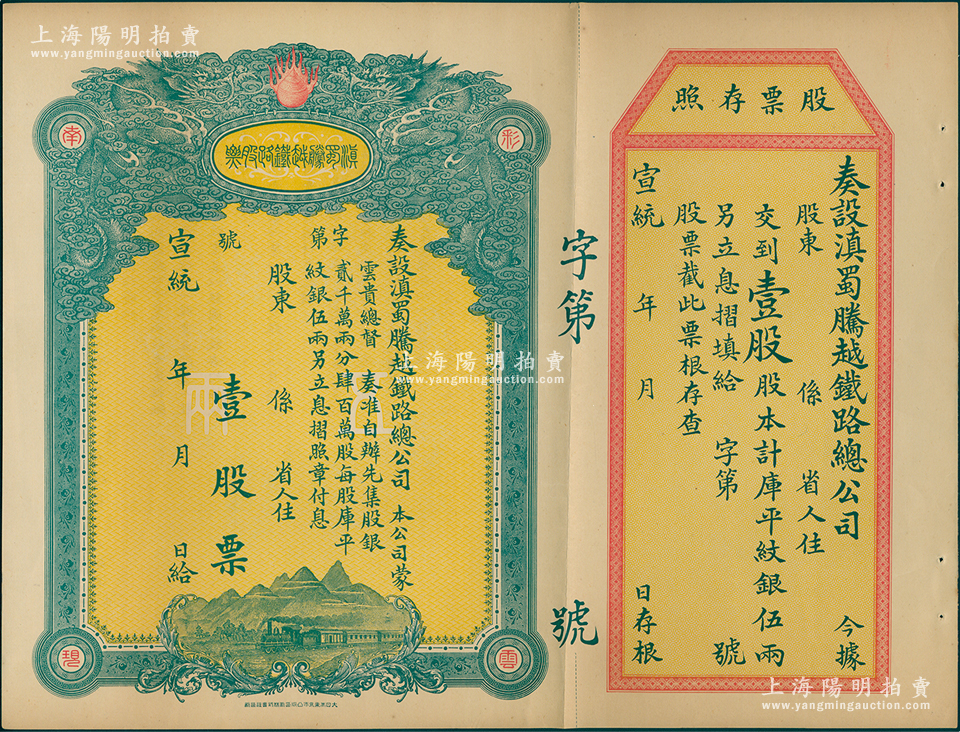 上海陽明拍賣
www.yangmingauction.com
股票存照
奏設滇蜀騰越鐵路總公司 今據
股東 係 省人住
交到壹股股本計庫平紋銀伍兩
另立息摺填給 字第 號
股票截此票根存查
宣統 年 月 日存根
字第 號
滇蜀騰越鐵路股票
彩
南
雲
現
奏設滇蜀騰越鐵路總公司 本公司蒙
雲貴總督 奏准自辦先集股銀
貳千萬兩分肆百萬股每股庫平
紋銀伍兩另立息摺照章付息
字第 號
股東 係 省人住
壹股票
宣統 年 月 日給
五兩
上海陽明拍賣
www.yangmingauction.com
上海陽明拍賣
www.yangmingauction.com